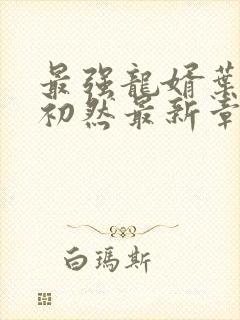 最强龍婿葉
初然最新章
白瑪斯